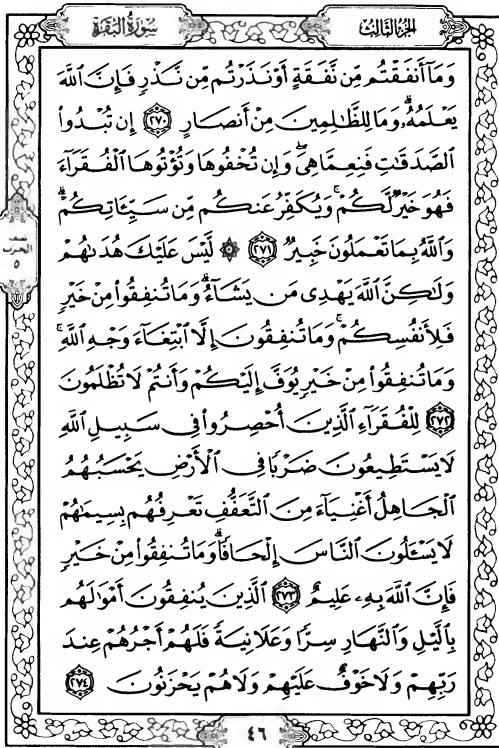 الجزء الثالث
سورة البقرة
وَمَآ أَنفَقْتُم مِّن نَّفَقَةٍ أَوْ نَذَرْتُم مِّن نَّذْرٍ فَإِنَّ ٱللَّهَ
يَعْلَمُهُۥ ۗ وَمَا لِلظَّٰلِمِينَ مِنْ أَنصَارٍ ﴿٢٧٠﴾ إِن تُبْدُوا۟
ٱلصَّدَقَٰتِ فَنِعِمَّا هِىَ ۖ وَإِن تُخْفُوهَا وَتُؤْتُوهَا ٱلْفُقَرَآءَ
فَهُوَ خَيْرٌ لَّكُمْ ۚ وَيُكَفِّرُ عَنكُم مِّن سَيِّـَٔاتِكُمْ ۗ
وَٱللَّهُ بِمَا تَعْمَلُونَ خَبِيرٌ ﴿٢٧١﴾ ۞ لَّيْسَ عَلَيْكَ هُدَىٰهُمْ
وَلَٰكِنَّ ٱللَّهَ يَهْدِى مَن يَشَآءُ ۗ وَمَا تُنفِقُوا۟ مِنْ خَيْرٍ
فَلِأَنفُسِكُمْ ۚ وَمَا تُنفِقُونَ إِلَّا ٱبْتِغَآءَ وَجْهِ ٱللَّهِ ۚ
وَمَا تُنفِقُوا۟ مِنْ خَيْرٍ يُوَفَّ إِلَيْكُمْ وَأَنتُمْ لَا تُظْلَمُونَ
﴿٢٧٢﴾ لِلْفُقَرَآءِ ٱلَّذِينَ أُحْصِرُوا۟ فِى سَبِيلِ ٱللَّهِ
لَا يَسْتَطِيعُونَ ضَرْبًا فِى ٱلْأَرْضِ يَحْسَبُهُمُ
ٱلْجَاهِلُ أَغْنِيَآءَ مِنَ ٱلتَّعَفُّفِ تَعْرِفُهُم بِسِيمَٰهُمْ
لَا يَسْـَٔلُونَ ٱلنَّاسَ إِلْحَافًا ۗ وَمَا تُنفِقُوا۟ مِنْ خَيْرٍ
فَإِنَّ ٱللَّهَ بِهِۦ عَلِيمٌ ﴿٢٧٣﴾ ٱلَّذِينَ يُنفِقُونَ أَمْوَٰلَهُم
بِٱلَّيْلِ وَٱلنَّهَارِ سِرًّا وَعَلَانِيَةً فَلَهُمْ أَجْرُهُمْ عِندَ
رَبِّهِمْ وَلَا خَوْفٌ عَلَيْهِمْ وَلَا هُمْ يَحْزَنُونَ ﴿٢٧٤﴾
الحزب
٥
٤٦